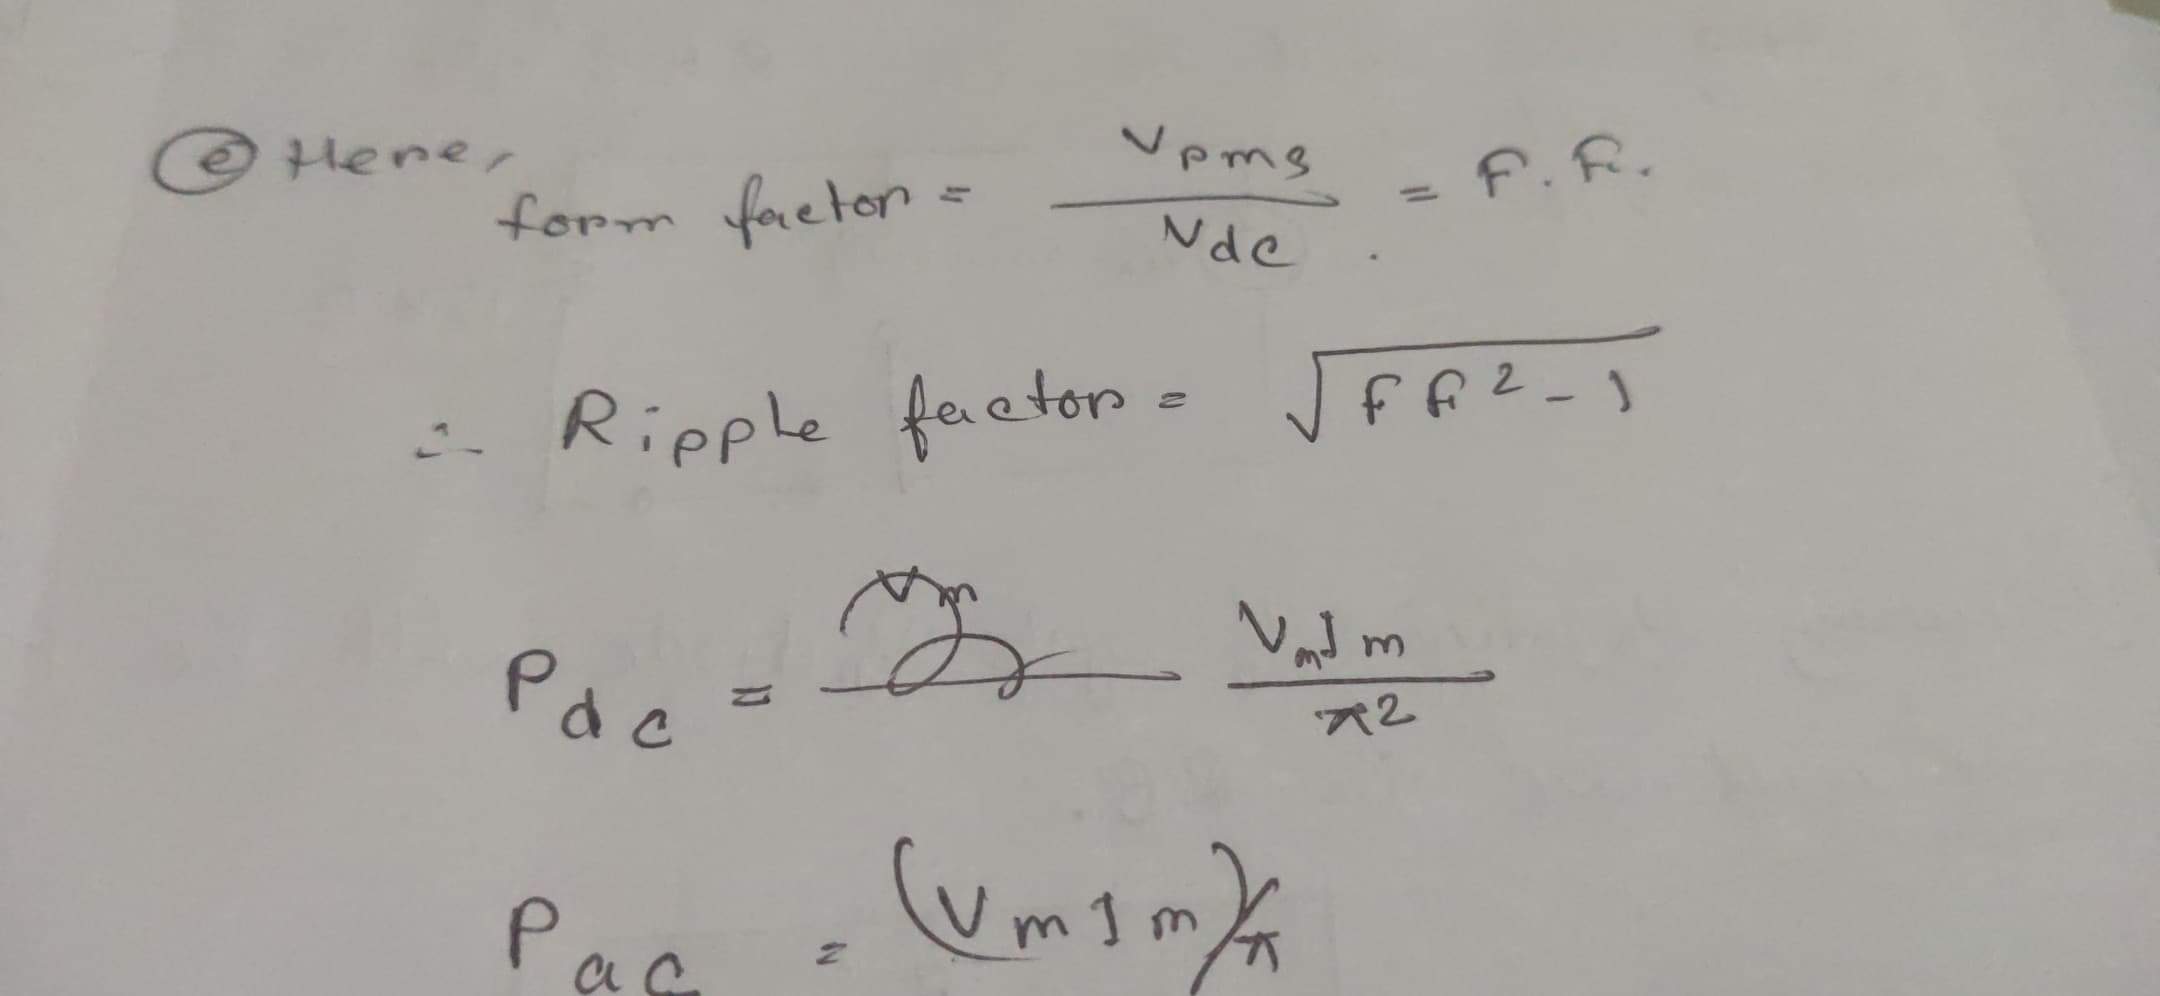 ⓔ Here,
form factor = Vrms / Vdc = F.F.
∴ Ripple factor = √(FF² - 1)
Pdc = VmIm / π²
Pac = (VmIm) / π